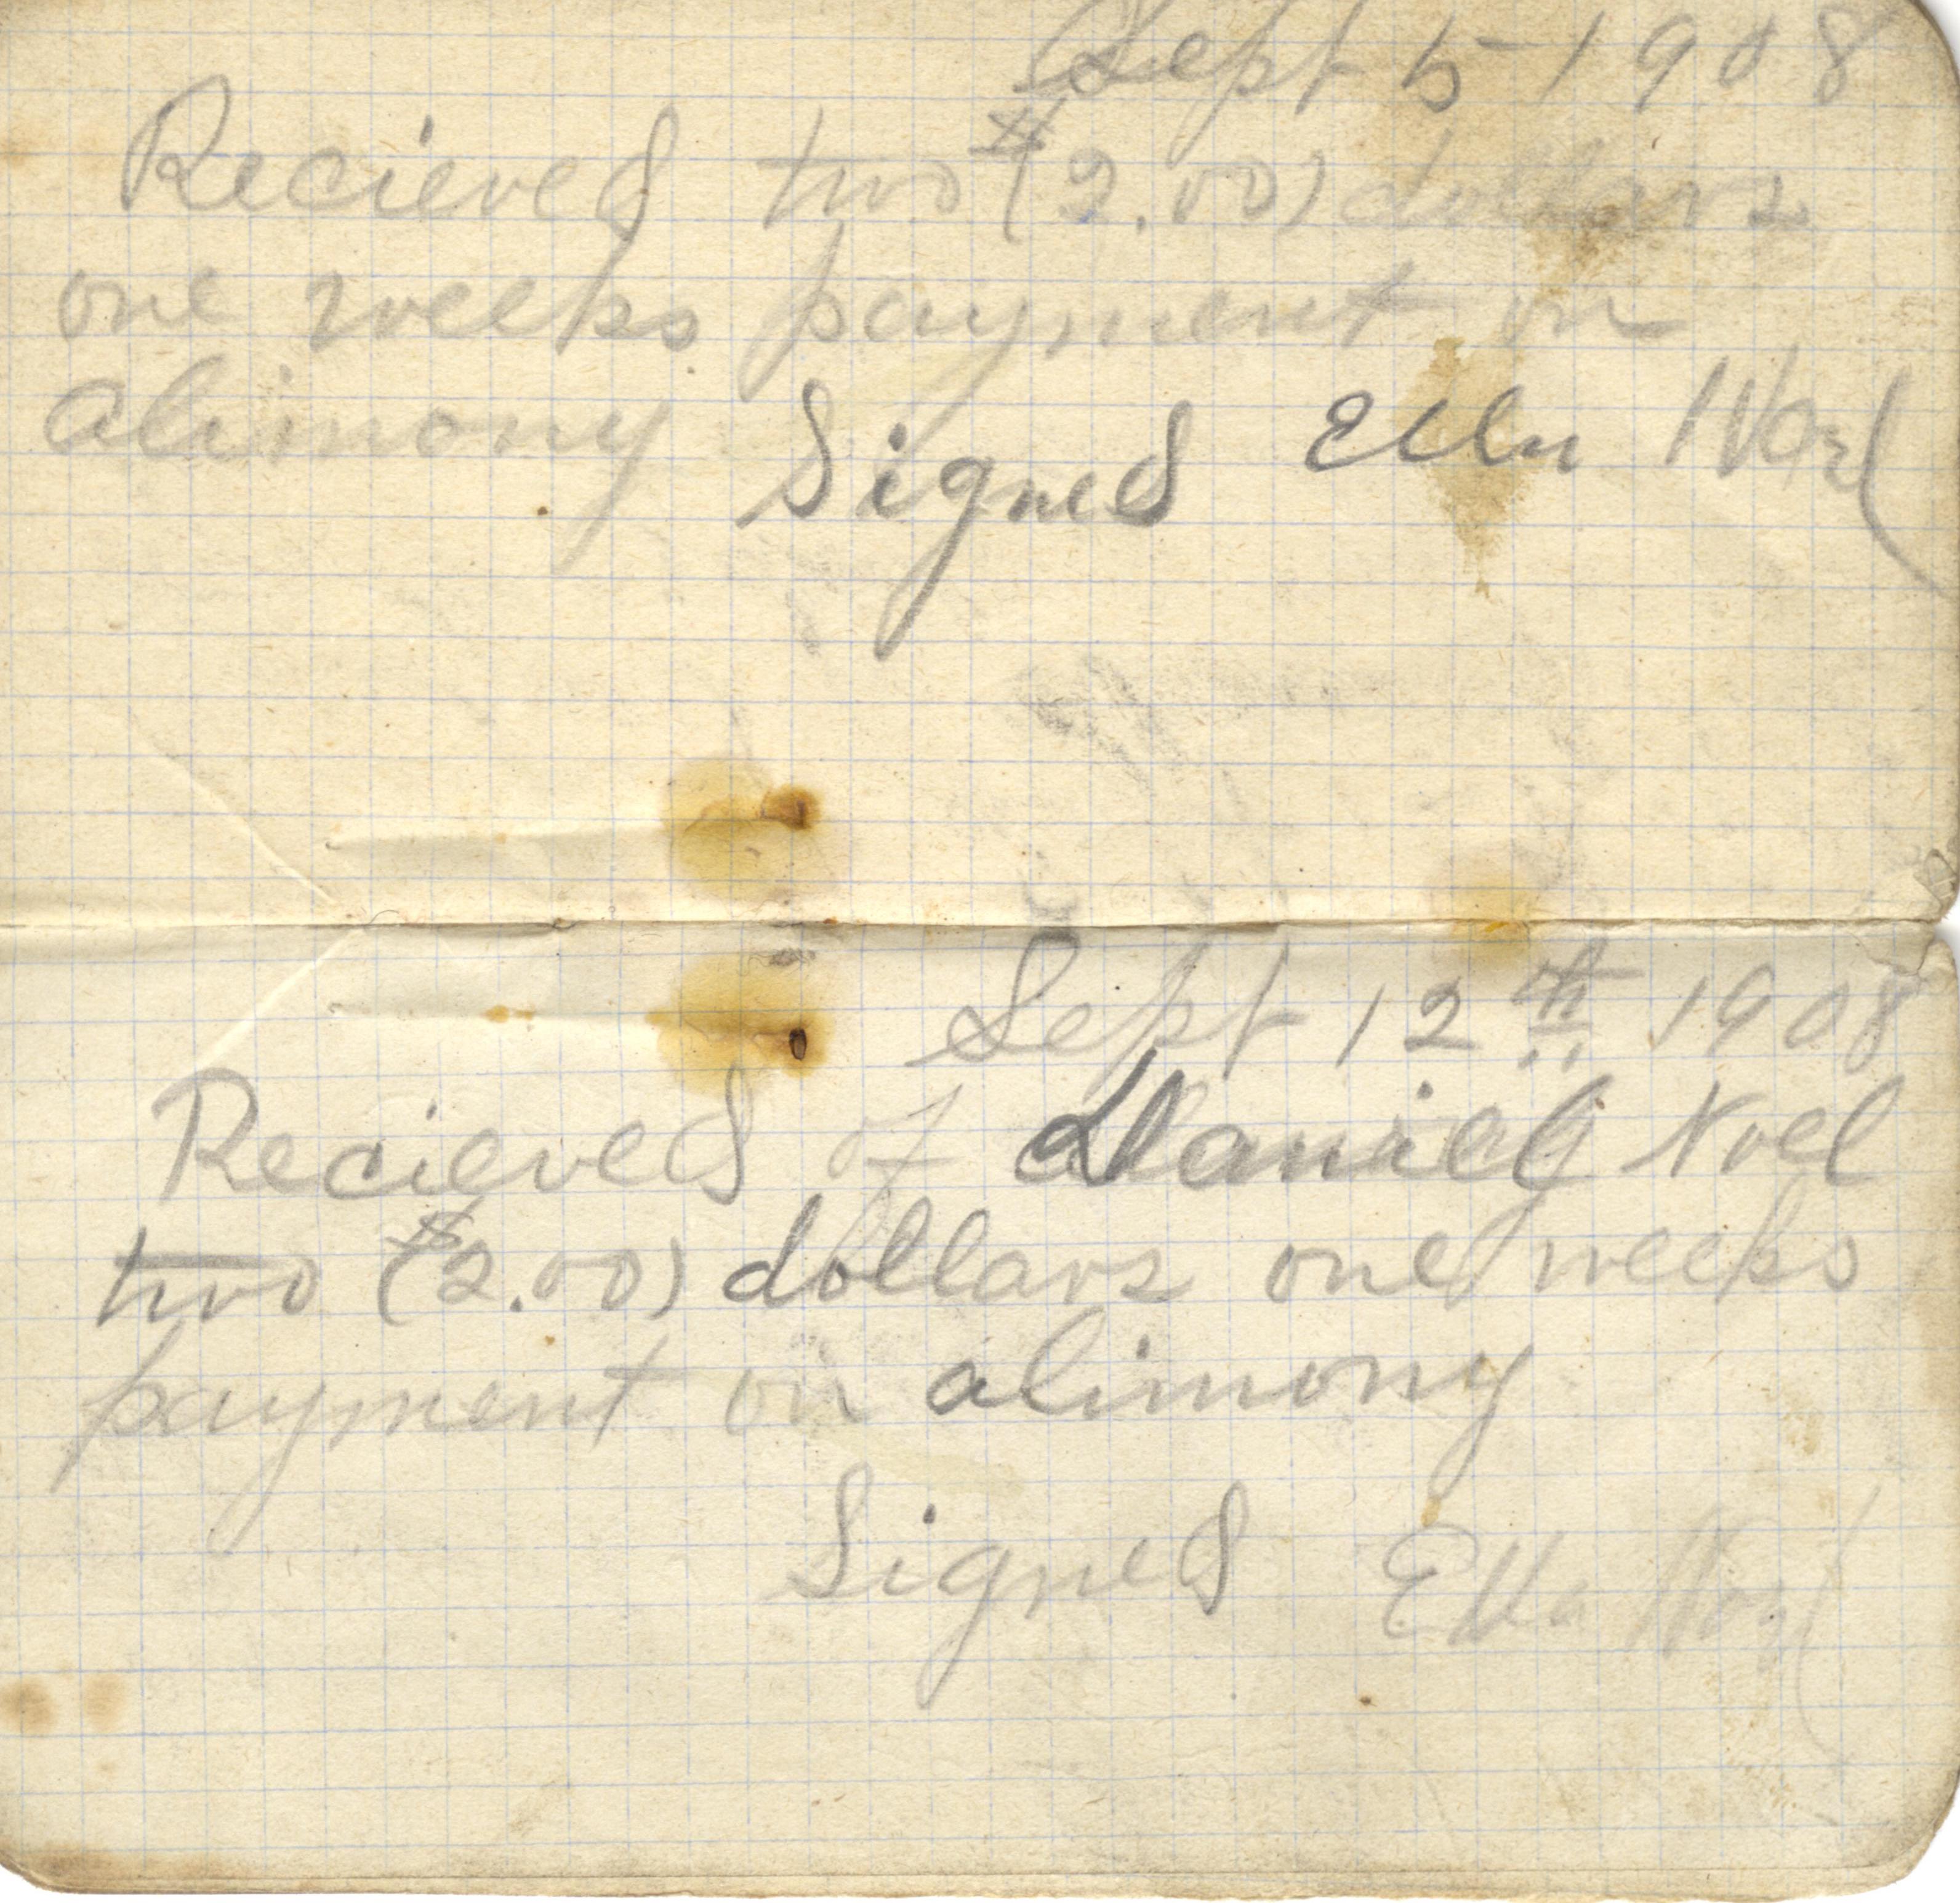 Sept 5 - 1908
Recieved two ($2.00) dollars
one weeks payment on
alimony Signed Ella Noel
Sept 12th 1908
Recieved of Daniel Noel
two ($2.00) dollars one weeks
payment on alimony
Signed Ella Noel